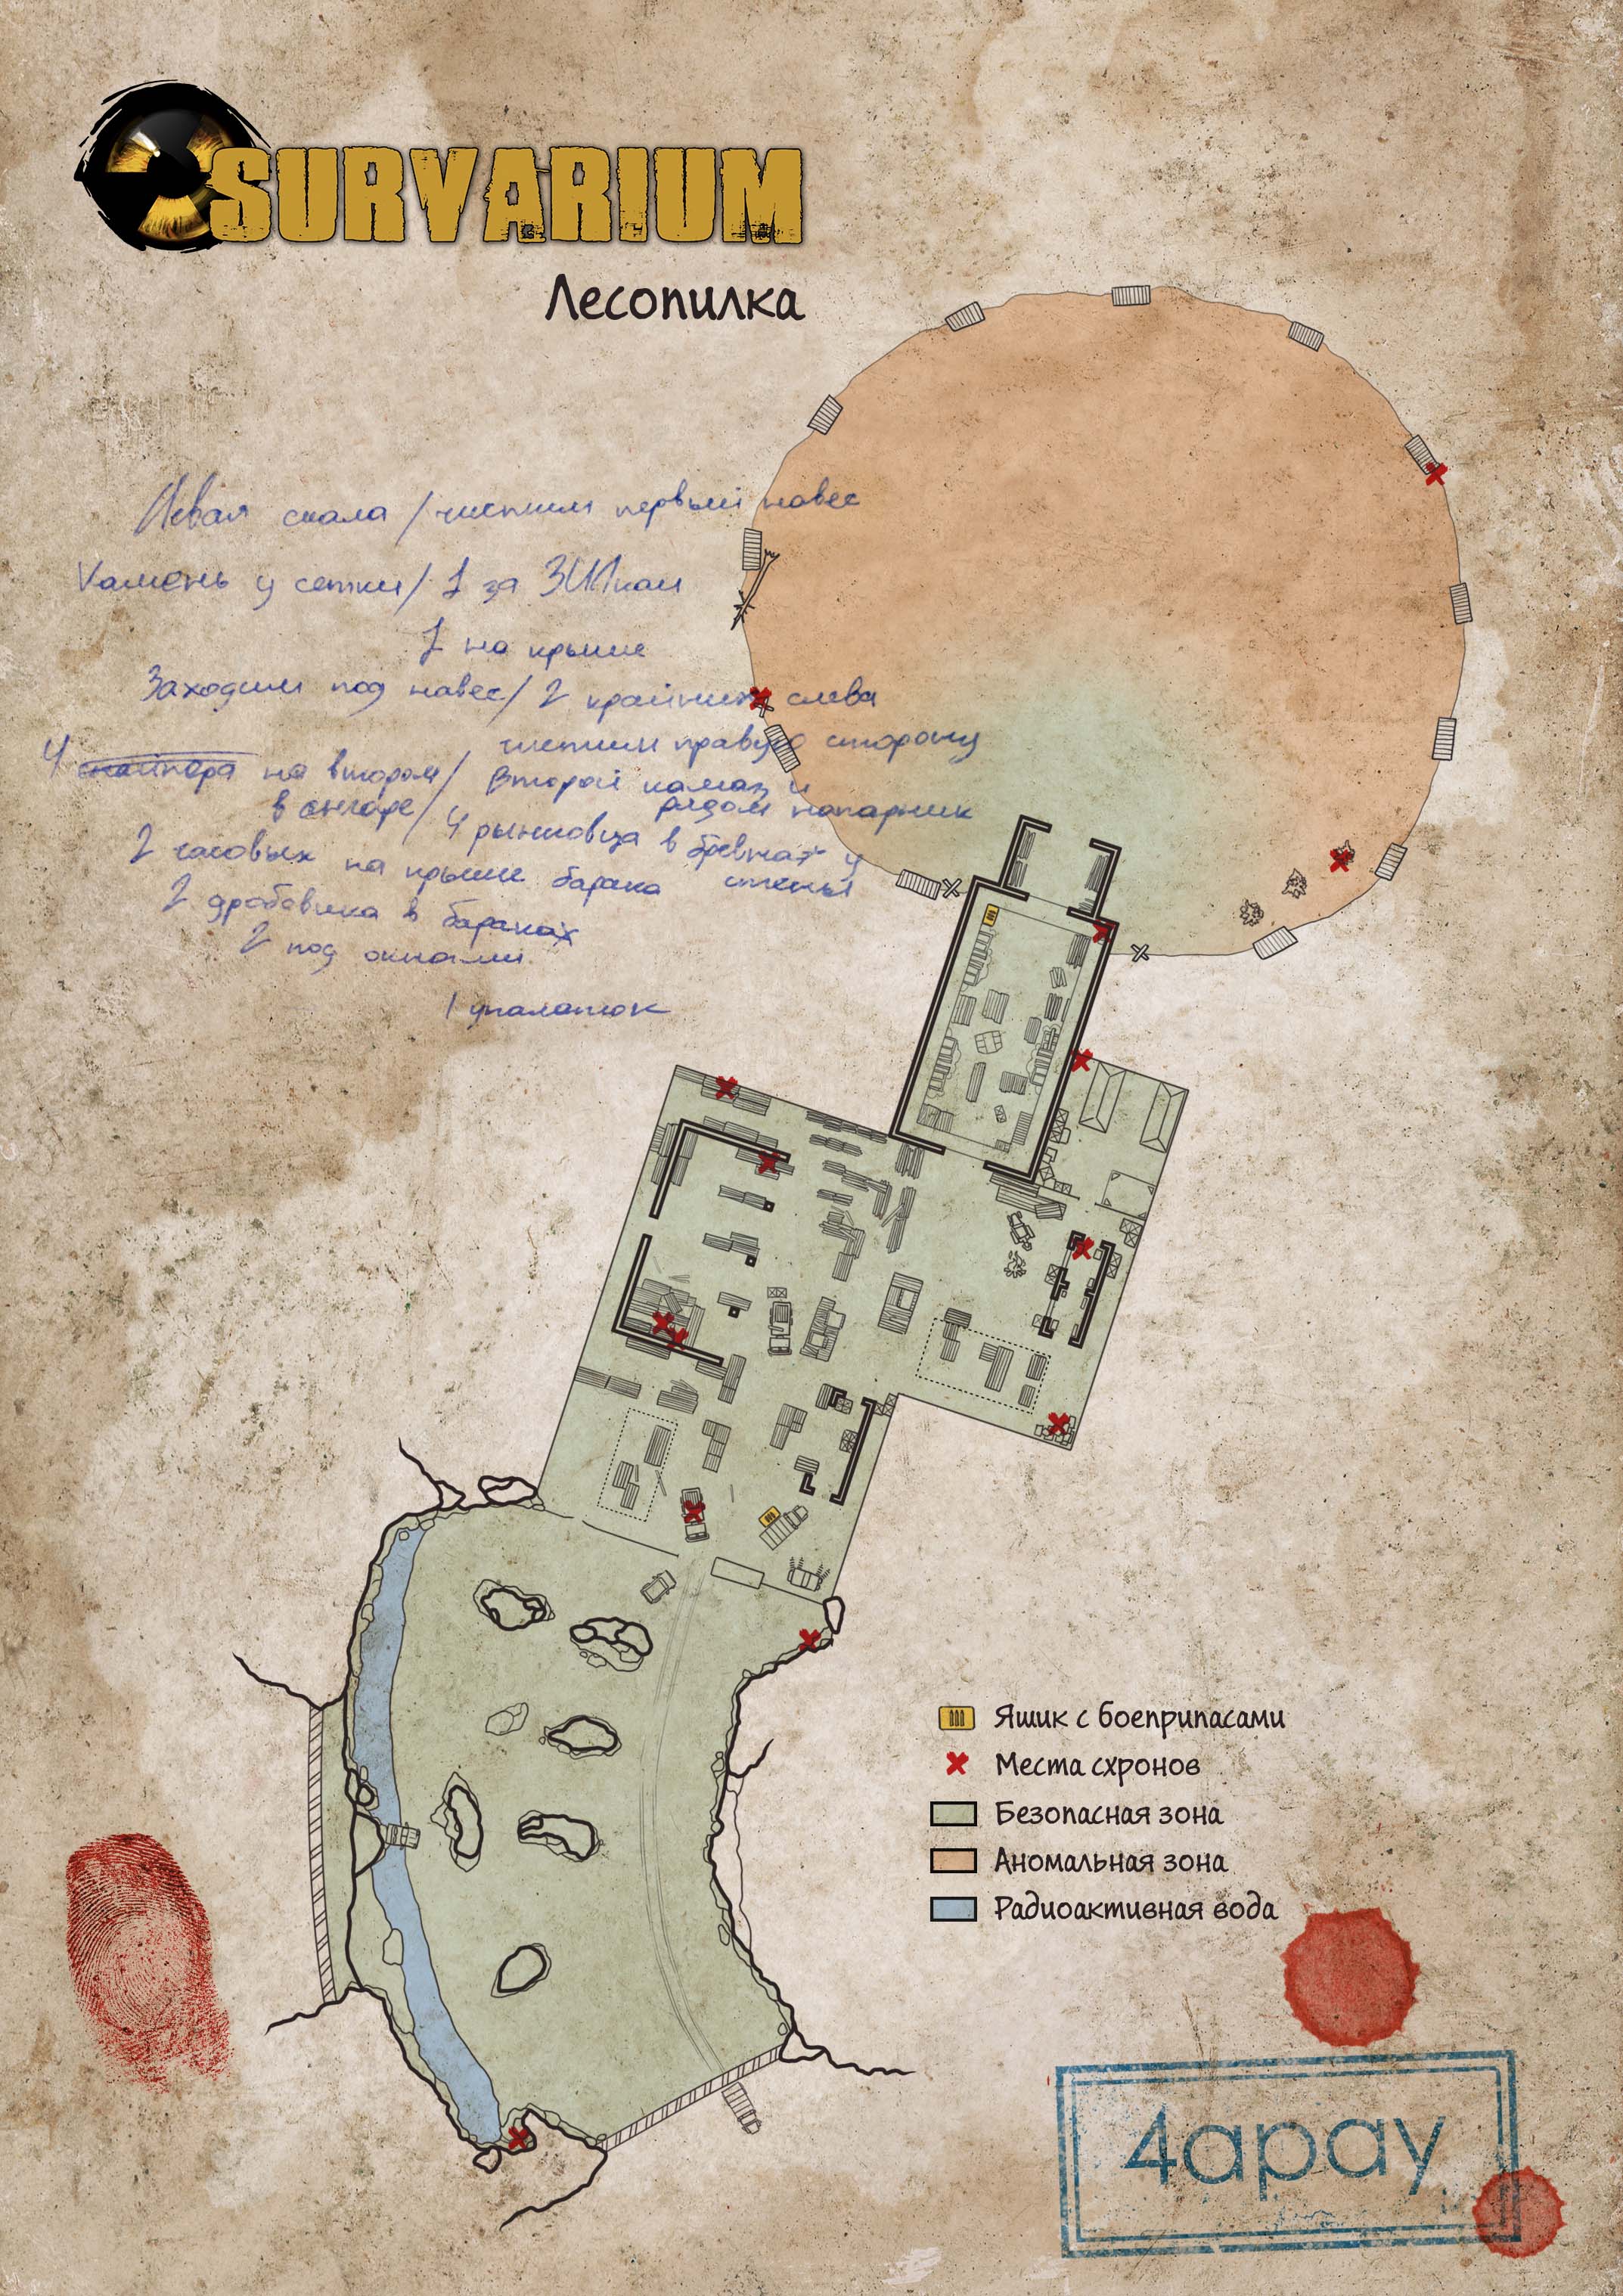 SURVARIUM
Лесопилка
Левая скала / чистим первый навес
Камень у сетки / 1 за ЗИЛном
1 на крыше
Заходим под навес / 2 крайних слева
чистим правую сторону
4 снайпера на втором / Второй камаз и
рядом напарник
в ангаре / 4 рынковца в бревнах у
стены
2 часовых на крыше барака
2 дробовика в бараках
2 под окнами
1 упалаток
Яшик с боеприпасами
Места схронов
Безопасная зона
Аномальная зона
Радиоактивная вода
4apay